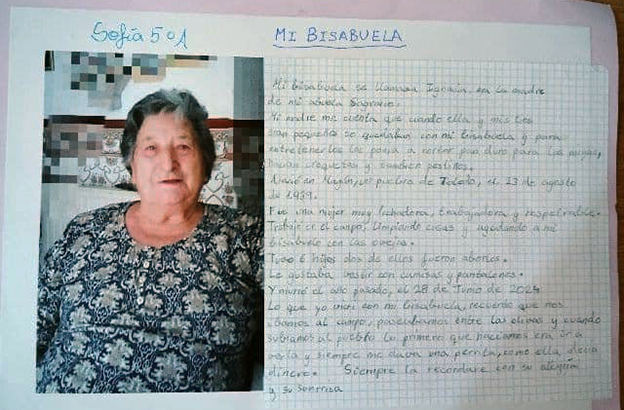 Sofía 5º A
MI BISABUELA
Mi bisabuela se llamaba Ignacia, era la madre
de mi abuela Sagrario.
Mi madre me cuenta que cuando ella y mis tíos
eran pequeños se quedaban con mi bisabuela y para
entretenerlos les ponía a rallar pan duro para las migas,
hacían croquetas y también pestiños.
Nació en un pueblo de Toledo, el 13 de agosto
de
Fue una mujer muy luchadora, trabajadora y respetable.
Trabajó en el campo, limpiando casas y ayudando a mi
bisabuelo con las ovejas.
Tuvo 6 hijos dos de ellos fueron abortos.
Le gustaba vestir con camisas y pantalones.
Y murió el año pasado, el 28 de Junio de 2024
Lo que yo viví con mi bisabuela, recuerdo que nos
íbamos al campo, paseábamos entre las olivas y cuando
subíamos al pueblo lo primero que hacíamos era ir a
verla y siempre me daba una perrita, como ella decía
dinero. Siempre la recordaré con su alegría
y su sonrisa